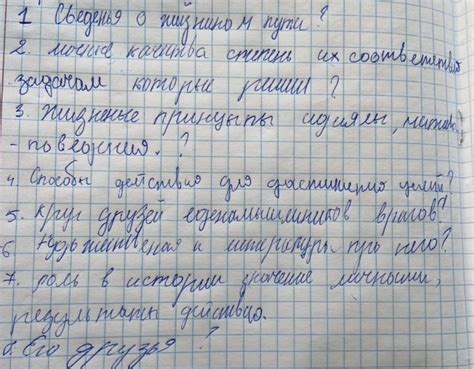 1 Сведенья о жизнином пути?
2. личные качества степень их соответствия
задачам которые решил?
3. Жизненые принцыпы идиялы, мотивы
- поведения. ?
4. Способы действия для достижения целей?
5. круг друзей еденамышлиников врагов?
6 Художественая и литература про него?
7. роль в истории значение личными,
результаты действия.
8. Его друзья ?